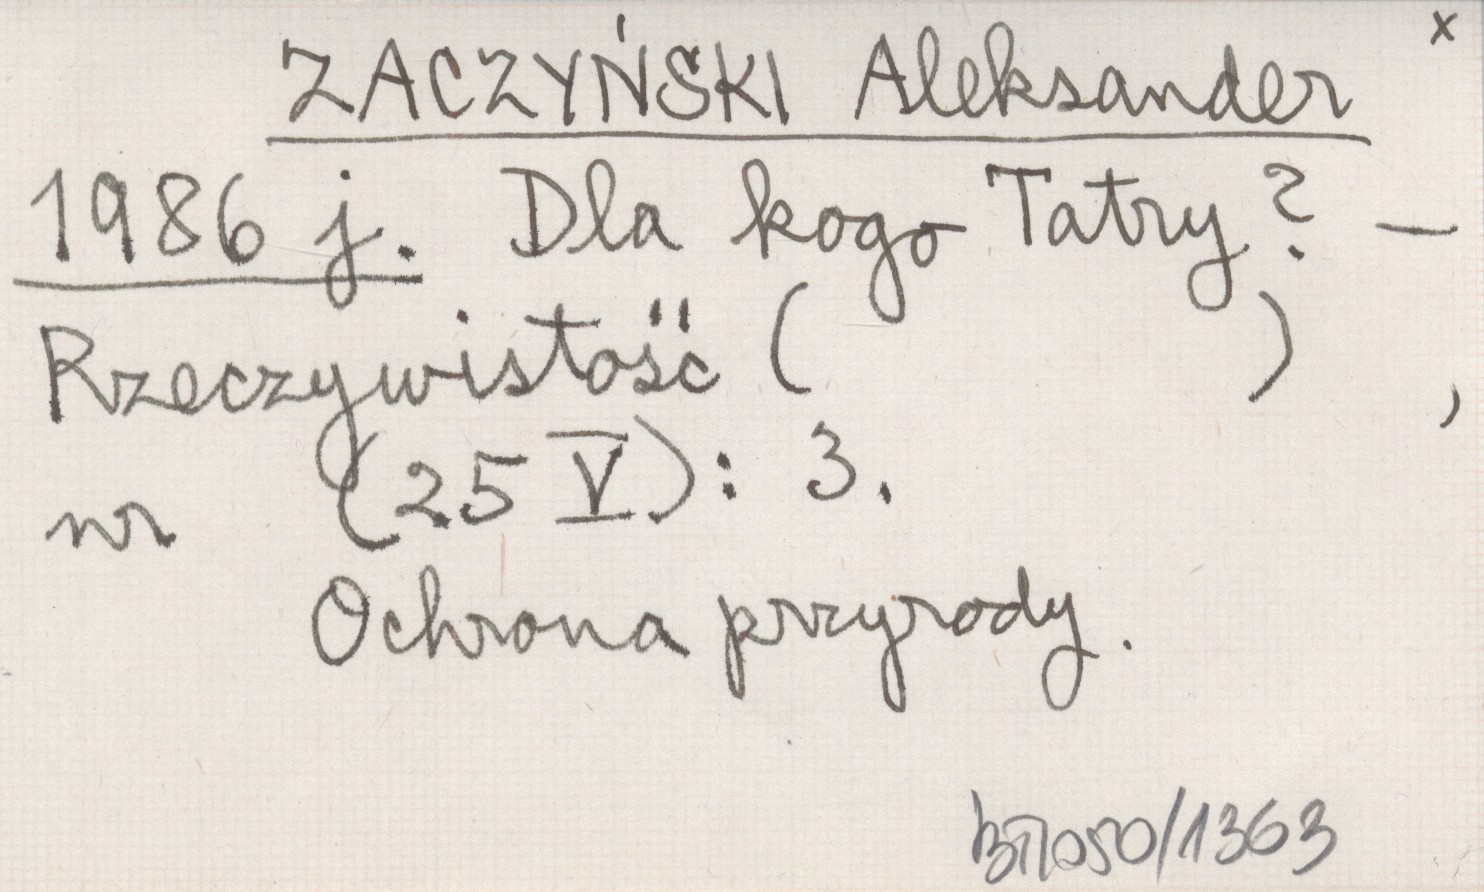 x
ZACZYŃSKI Aleksander
1986 j. Dla kogo Tatry? —
Rzeczywistość ( ) ,
nr (25 V): 3.
Ochrona przyrody.
/1363